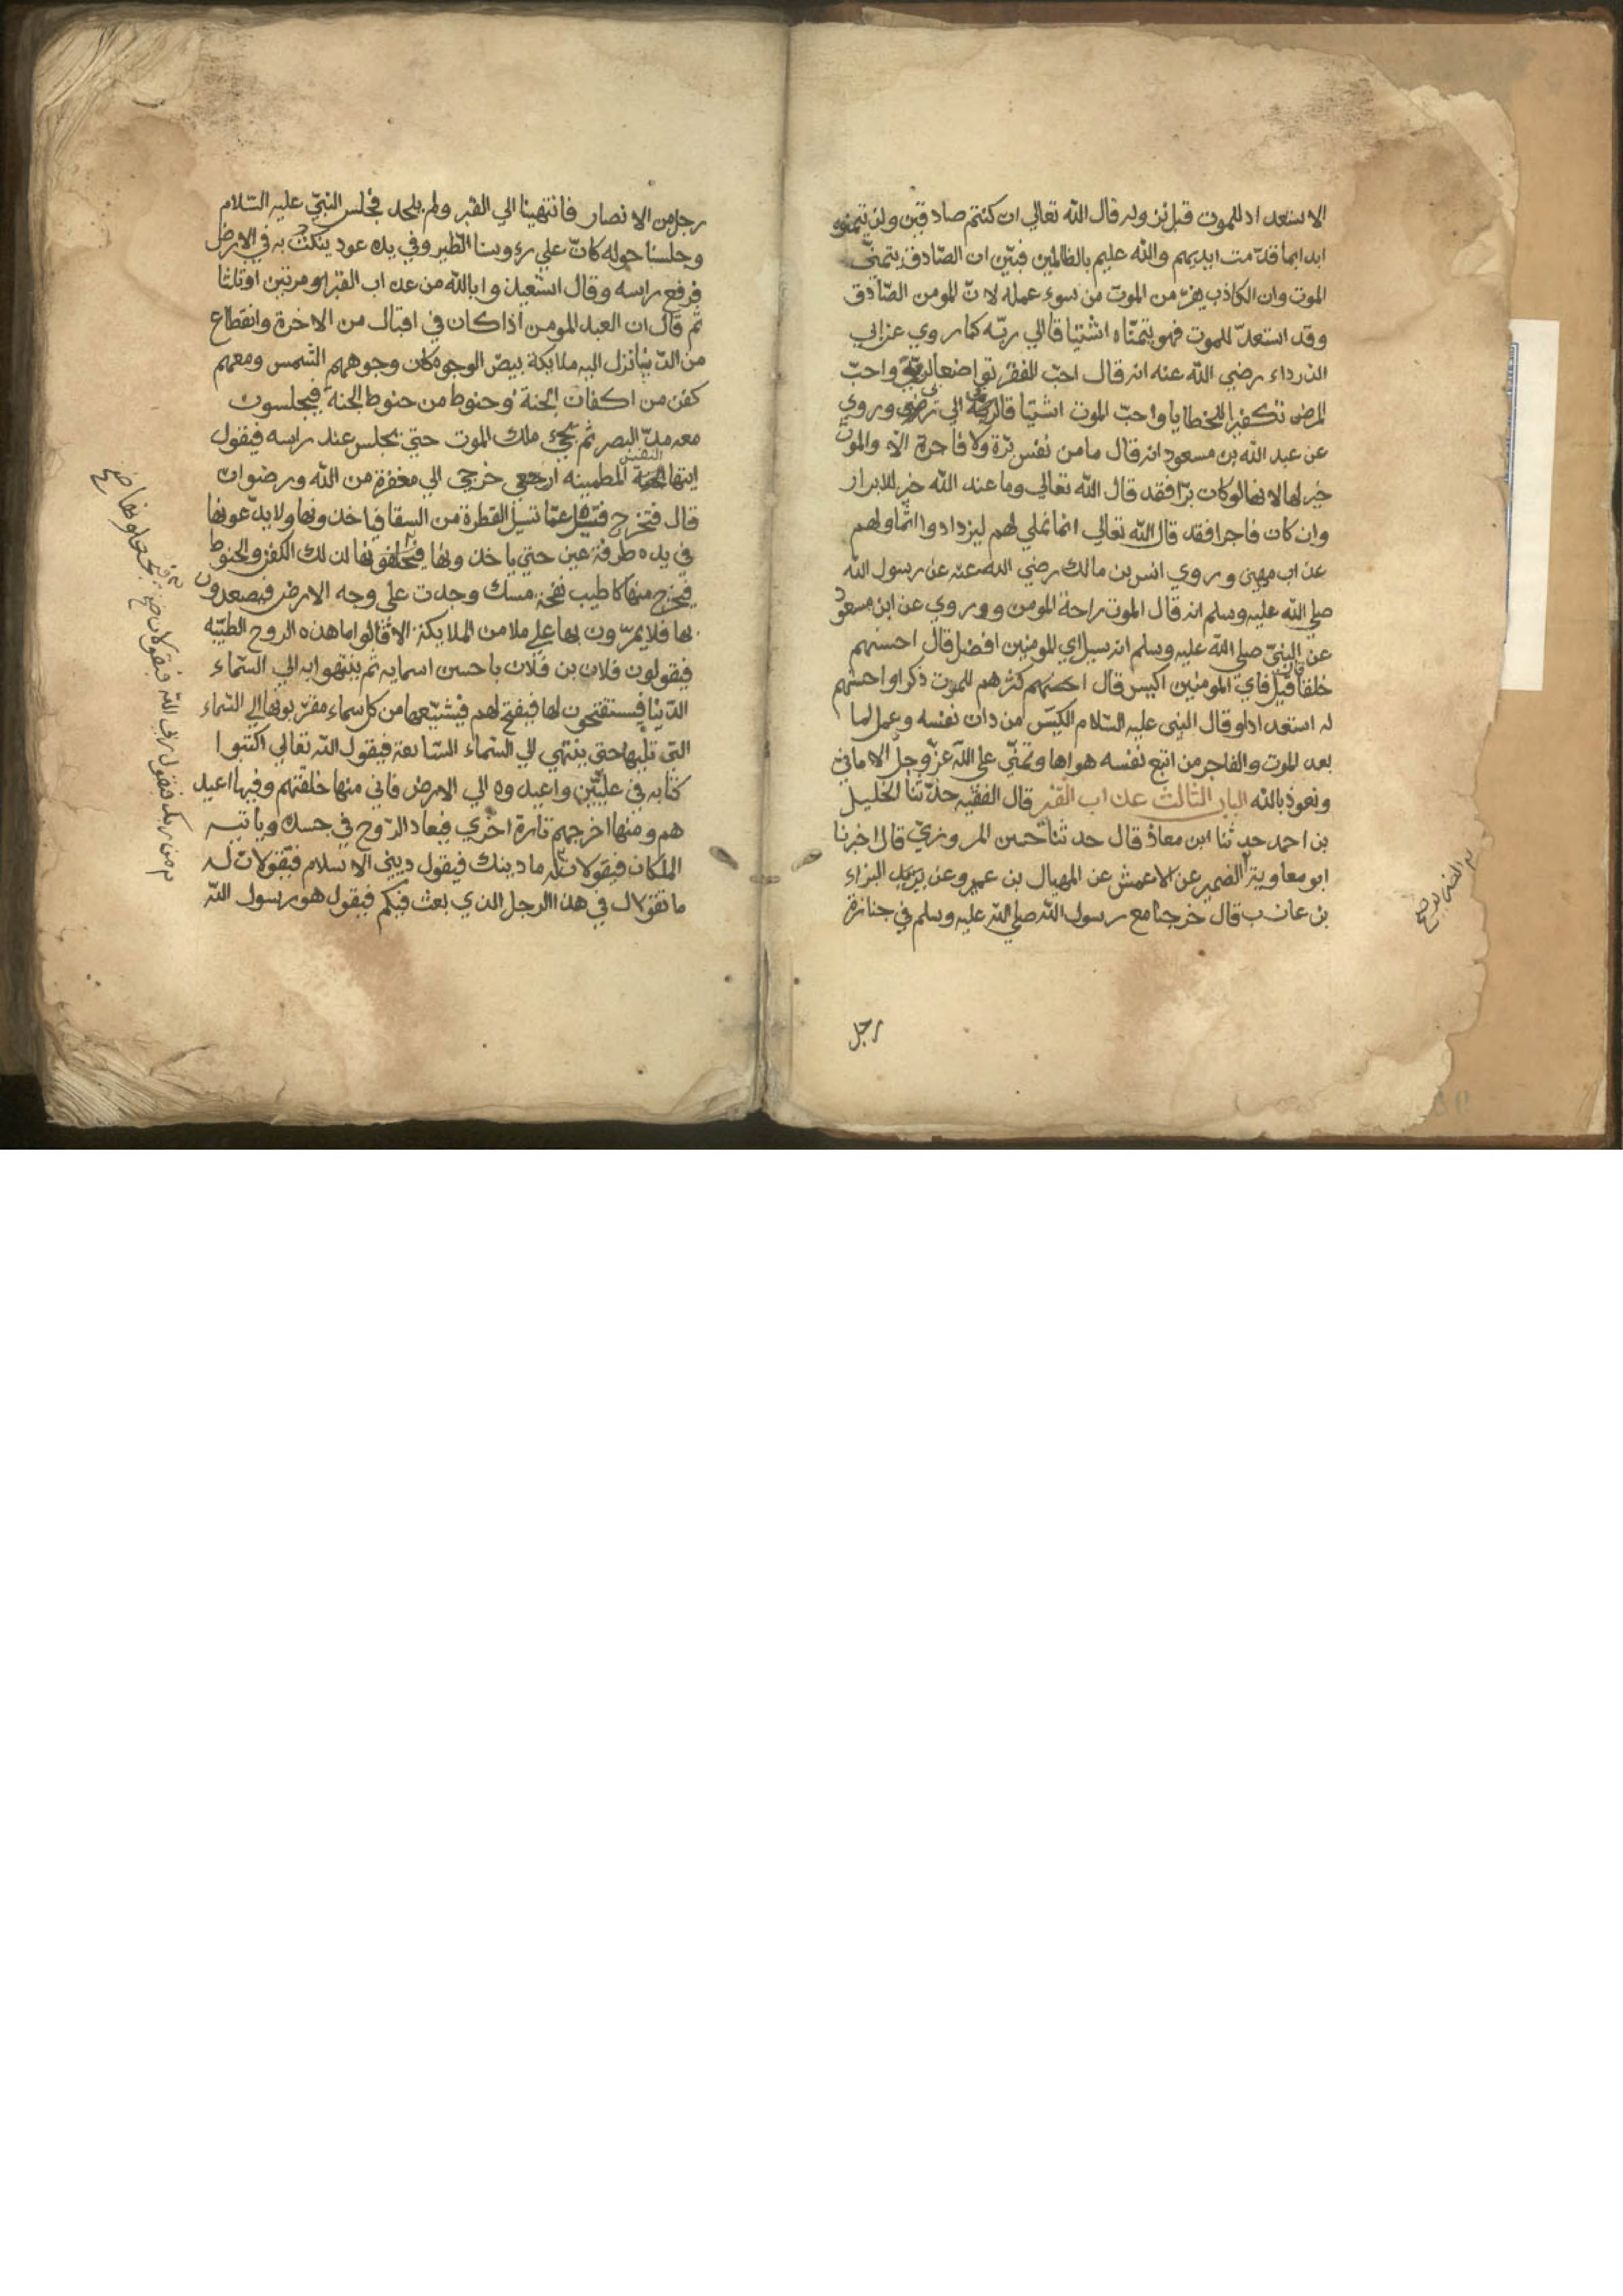 الاستعداد للموت قبل نزوله قال الله تعالي ان كنتم صادقين ولن يتمنوه
ابدا بما قدّمت ايديهم والله عليم بالظالمين فبيّن ان الصّادق يتمنّي
الموت وان الكاذب يفرّ من الموت من سوء عمله لانّ المومن الصّادق
وقد استعدّ للموت فهو يتمنّاه اشتيا قا الي ربّه كما روي عن ابي
الدرداء رضي الله عنه انه قال احبّ الفقر تواضعا لربّي واحبّ
المرض تكفيرا للخطايا واحبّ الموت اشتيا قا الي ربي وروي
عن عبد الله بن مسعود انه قال ما من نفس برّة ولا فاجرة الّا والموت
خير لها لانها لو كان برّا فقد قال الله تعالي وما عند الله خير للابرار
وان كان فاجرا فقد قال الله تعالي انما نملي لهم ليزدادوا اثما ولهم
عذاب مهين وروي انس بن مالك رضي الله عنه عن رسول الله
صلي الله عليه وسلم انه قال الموت راحة المومن وروي عن ابن مسعود
عن النبيّ صلي الله عليه وسلم انه سيل اي المومنين افضل قال احسنهم
خلقا قيل فاي المومنين اكيس قال اكثرهم للموت ذكرا واحسنهم
له استعدادا وقال النبي عليه السّلام الكيّس من دان نفسه وعمل لما
بعد الموت والفاجر من اتبع نفسه هواها وتمنّي علي الله عزّ وجلّ الاماني
ونعوذ بالله الباب الثالث عذاب القبر قال الفقيه حدّثنا الخليل
بن احمد حدثنا ابن معاذ قال حدثنا حسين المروزيّ قال اخبرنا
ابو معاوية الضمير عن الاعمش عن المهيال بن عمرو عن البراء
بن عازب قال خرجنا مع رسول الله صلي الله عليه وسلم في جنازة
رجل
رجل من الانصار فانتهينا الي القبر ولم يلحد فجلس النبيّ عليه السّلام
وجلسنا حوله كانّ علي رءوسنا الطير وفي يده عود ينكت به في الارض
فرفع راسه وقال استعيذوا بالله من عذاب القبر مرتين او ثلثا
ثم قال ان العبد المومن اذا كان في اقبال من الاخرة وانقطاع
من الدّنيا نزل اليه ملايكة بيض الوجوه كان وجوههم الشمس ومعهم
كفن من اكفان الجنة وحنوط من حنوط الجنة فيجلسون
معه مدّ البصر ثم يجيء ملك الموت حتي يجلس عند راسه فيقول
ايتها النفس المطمينه ارجعي خرجي الي مغفرة من الله ورضوان
قال فتخرج فتسيل كما تسيل القطرة من السقا فياخذونها ولا يدعونها
في يده طرفة عين حتي ياخذونها فيجعلونها لذلك الكفن والحنوط
فيخرج منها كاطيب نفخة مسك وجدت علي وجه الارض فيصعدون
بها فلا يمرّون بها علي ملا من الملايكة الا قالوا ما هذه الروح الطيّبه
فيقولون فلان بن فلان باحسن اسمايه ثم ينتهوا به الي السّماء
الدّنيا فيستفتحون لها فيفتح لهم فيشيّعها من كل سماء مقرّبوها الي السّماء
التي تليها حتي ينتهي الي السّماء السّابعة فيقول الله تعالي اكتبوا
كتابه في عليّين واعيدوه الي الارض فاني منها خلقتهم وفيها اعيد
هم ومنها اخرجهم تارة اخري فيعاد الرّوح في جسده وياتيه
الملكان فيقولان له ما دينك فيقول ديني الاسلام فيقولان له
ما تقول في هذا الرجل الذي بعث فيكم فيقول هو رسول الله
من ربك فيقول ربي الله فيقولان